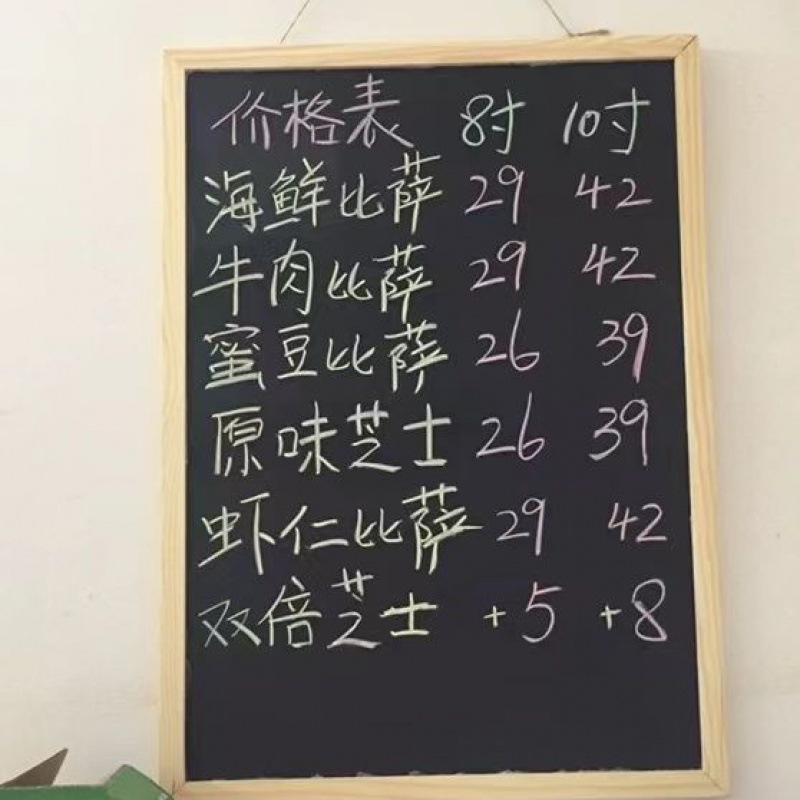 价格表 8寸 10寸
海鲜比萨 29 42
牛肉比萨 29 42
蜜豆比萨 26 39
原味芝士 26 39
虾仁比萨 29 42
双倍芝士 +5 +8